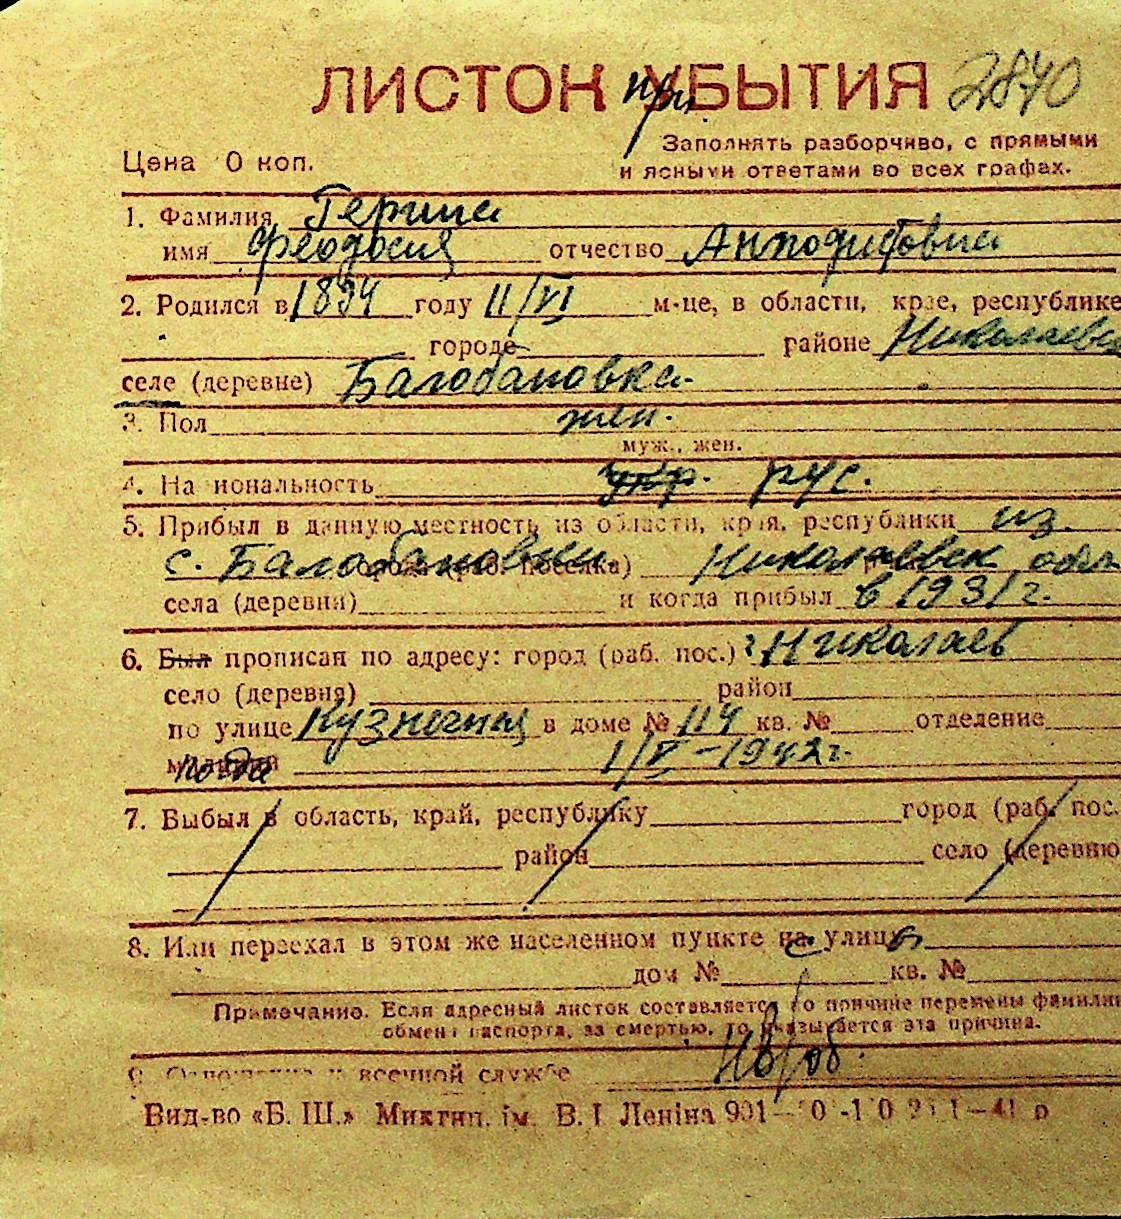 ЛИСТОК УБЫТИЯ При 2870
Заполнять разборчиво, с прямыми
Цена 0 коп. и ясными ответами во всех графах.
1. Фамилия
имя Феодосия отчество
2. Родился в 1894 году 11/VI м-це, в области, крае, республике
городе районе Николаевск
селе (деревне) Балобановка
3. Пол жен.
муж., жен.
4. Национальность укр. рус.
5. Прибыл в данную местность из области, края, республики из
с. Балобановки Николаевск обл
села (деревни) и когда прибыл в 1931 г.
6. Был прописан по адресу: город (раб. пос.) г. Николаев
село (деревня) район
по улице Кузнечная в доме № 114 кв. № отделение
милиции 1/V-1942 г.
7. Выбыл в область, край, республику город (раб. пос.
район село (деревню
8. Или переехал в этом же населенном пункте на улицу
дом № кв. №
Примечание. Если адресный листок составляется по причине перемены фамилии
обмена паспорта, за смертью, то указывается эта причина.
9. Отношение к военной службе
Вид-во «Б. Ш.» Микгип. ім. В. І Леніна